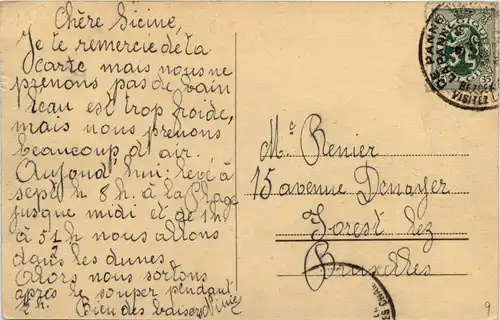 Chère Licine,
Je te remercie de ta
carte mais nous ne
prenons pas de bain
l'eau est trop froide,
mais nous prenons
beaucoup d'air.
Aujoud'hui: levé à
sept h 8 h. à la Plage
jusque midi et de 1 h
à 5 h nous allons
dans les dunes.
Alors nous sortons
après le souper pendant
h. Bien des baisers
Mr Renier
15 avenue Denayer
Forest lez
Bruxelles
DE PANNE
LA PANNE
VISITEZ
BELGIQUE
35
9